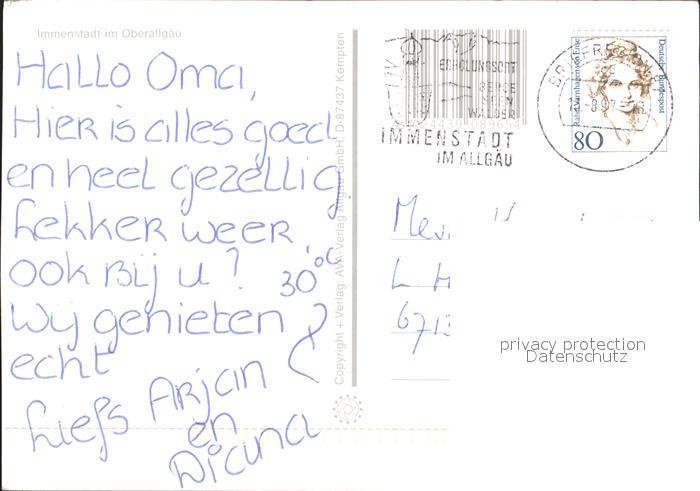 Immenstadt im Oberallgäu
Hallo Oma,
Hier is alles goed
en heel gezellig.
Lekker weer,
ook bij u? 30°C
Wij genieten
echt
Liefs Arjan
en
Diana
Copyright + Verlag: AVA-Verlag Allgäu GmbH, D-87437 Kempten
ERHOLUNGSORT
BERGE
SEEN
WÄLDER
IMMENSTADT
IM ALLGÄU
Rahel Varnhagen von Ense
Deutsche Bundespost
80
Mev
L H
6713
privacy protection
Datenschutz